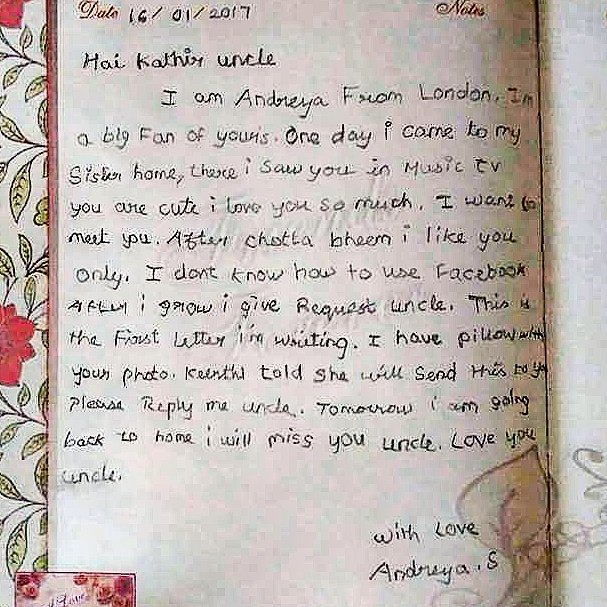 Date 16/01/2017 Notes
Hai Kathir uncle
I am Andreya From London. I'm
a big Fan of yours. One day i came to my
Sister home, there i saw you in Music tv
you are cute i love you so much. I want to
meet you. After chotta bheem i like you
only. I dont know how to use Facebook
After i grow i give Request uncle. This is
the First letter i'm writing. I have pillow with
your photo. Keerthi told she will Send this to you
Please Reply me uncle. Tomorrow i am going
back to home i will miss you uncle. Love you
uncle.
with Love
Andreya.S
Love